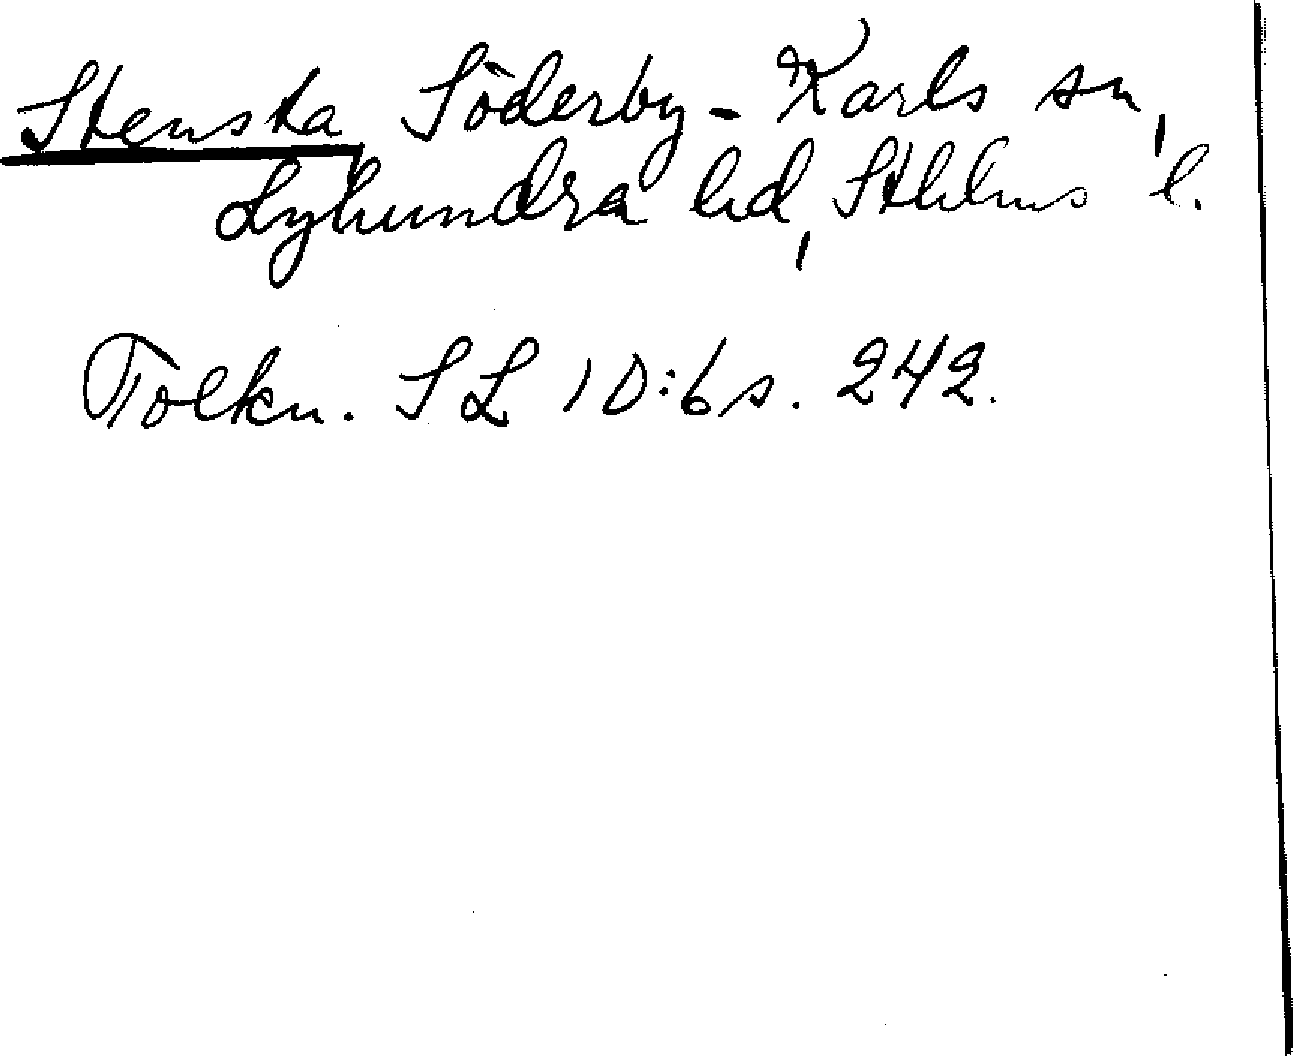 Stensta Söderby-Karls sn,
Lyhundra hd, Sthlms l.
Tolkn. SL 10:6 s. 242.